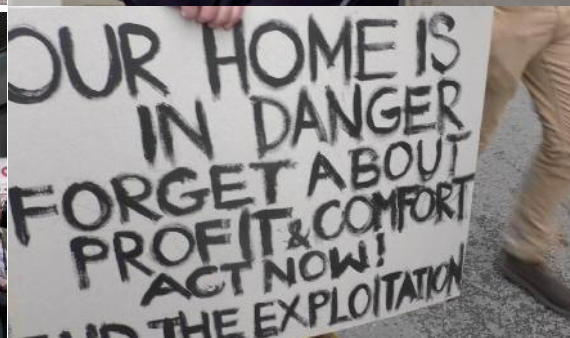 OUR HOME IS
IN DANGER
FORGET ABOUT
PROFIT & COMFORT
ACT NOW!
END THE EXPLOITATION